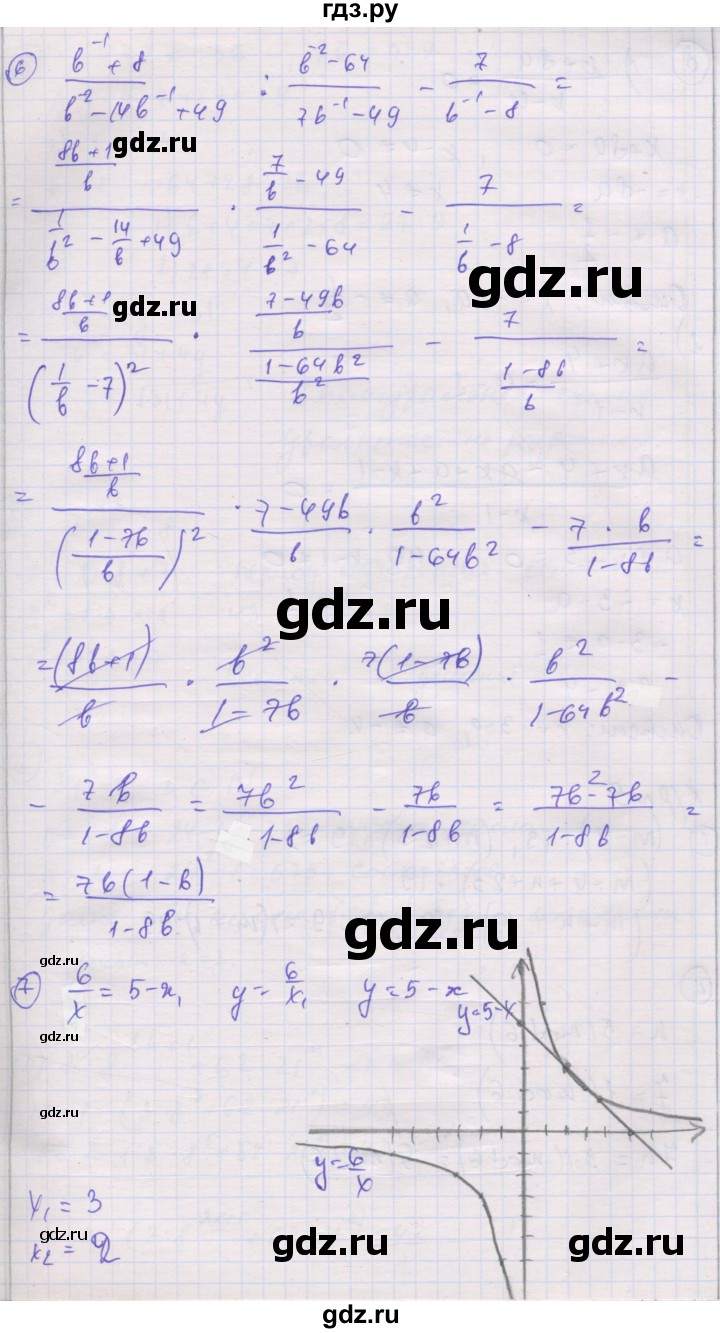 гдз.ру
6) (b⁻¹ + 8)/(b⁻² − 14b⁻¹ + 49) : (b⁻² − 64)/(7b⁻¹ − 49) − 7/(b⁻¹ − 8) =
gdz.ru
= ((8b + 1)/b)/(1/b² − 14/b + 49) · (7/b − 49)/(1/b² − 64) − 7/(1/b − 8) =
gdz.ru
gdz.ru
= ((8b + 1)/b)/(1/b − 7)² · ((7 − 49b)/b)/((1 − 64b²)/b²) − 7/((1 − 8b)/b) =
= ((8b + 1)/b)/((1 − 7b)/b)² · (7 − 49b)/b · b²/(1 − 64b²) − (7 · b)/(1 − 8b) =
gdz.ru
= (8b + 1)/b · b²/(1 − 7b) · 7(1 − 7b)/b · b²/(1 − 64b²) −
− 7b/(1 − 8b) = 7b²/(1 − 8b) − 7b/(1 − 8b) = (7b² − 7b)/(1 − 8b) =
= 7b(1 − b)/(1 − 8b)
gdz.ru
gdz.ru
7) 6/x = 5 − x, y = 6/x, y = 5 − x
y = 5 − x
gdz.ru
gdz.ru
y = 6/x
x₁ = 3
gdz.ru
x₂ = 2
gdz.ru
gdz.ru
gdz.ru